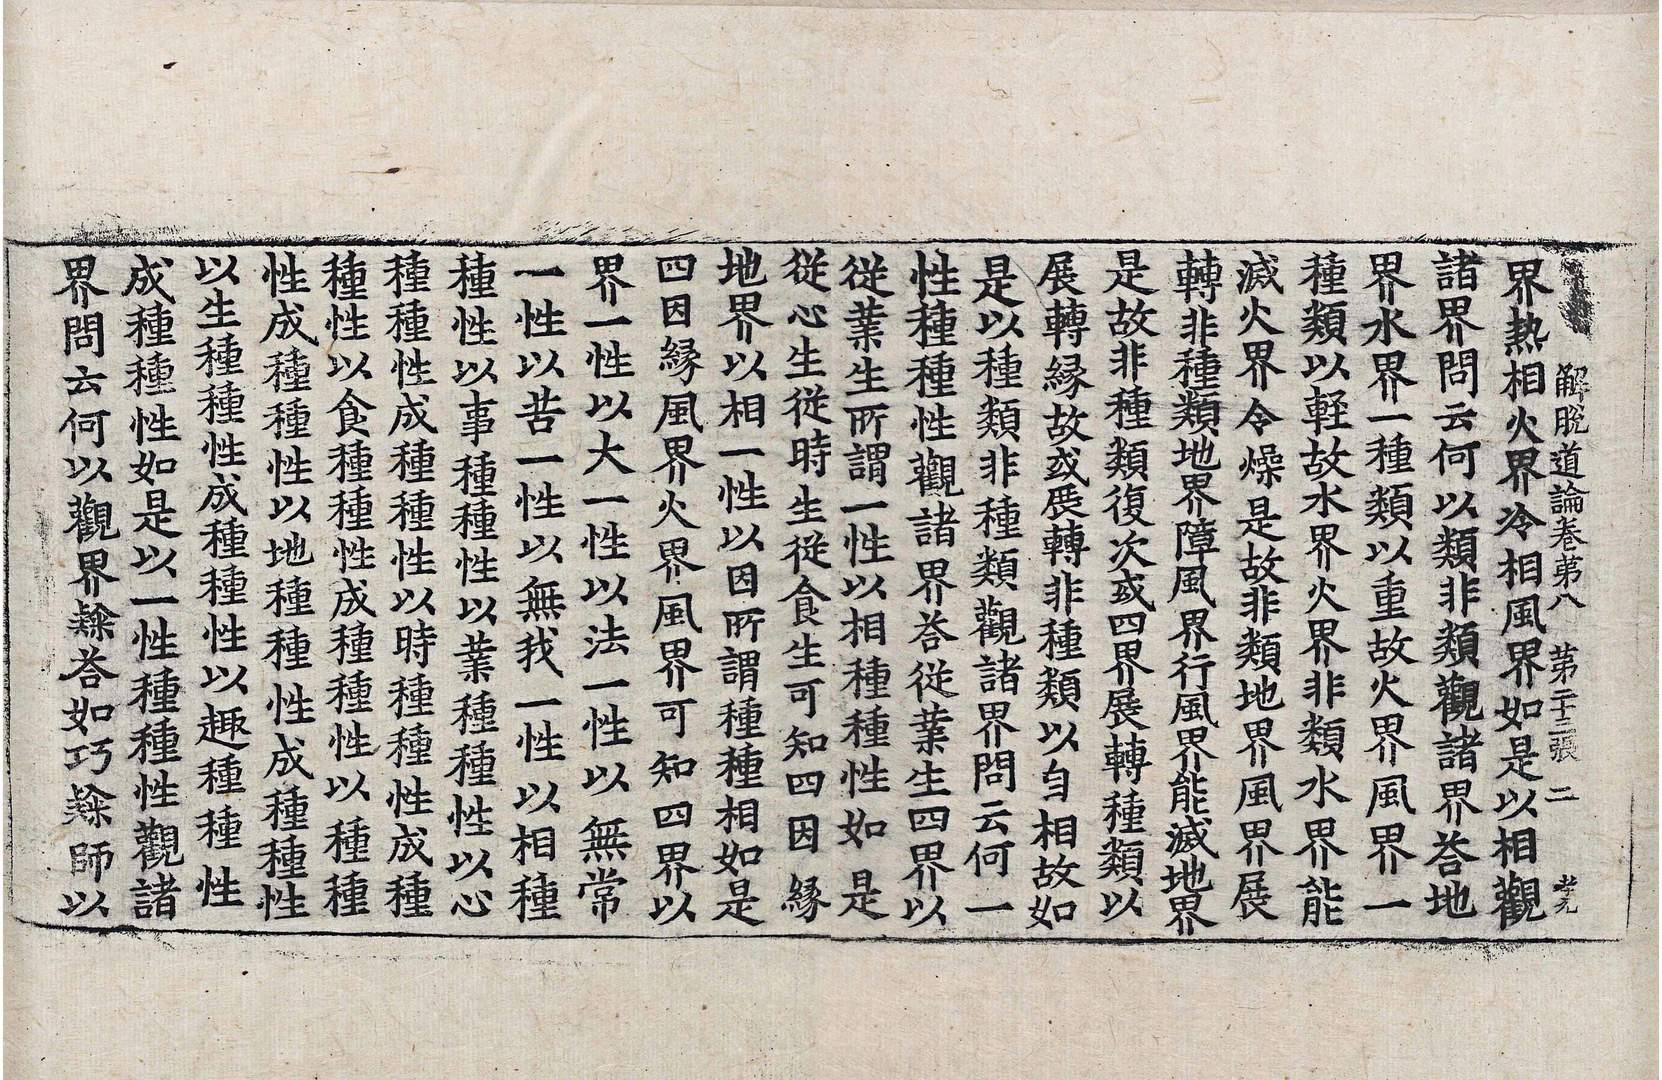 解脫道論卷第八　第二十三張　二　孝元
界熱相火界冷相風界如是以相觀
諸界問云何以類非類觀諸界荅地
界水界一種類以重故火界風界一
種類以輕故水界火界非類水界能
滅火界令燥是故非類地界風界展
轉非種類地界障風界行風界能滅地界
是故非種類復次或四界展轉種類以
展轉緣故或展轉非種類以自相故如
是以種類非種類觀諸界問云何一
性種種性觀諸界荅從業生四界以
從業生所謂一性以相種種性如是
從心生從時生從食生可知四因緣
地界以相一性以因所謂種種相如是
四因緣風界火界風界可知四界以
界一性以大一性以法一性以無常
一性以苦一性以無我一性以相種
種性以事種種性以業種種性以心
種種性成種種性以時種種性成種
種性以食種種性成種種性以種種
性成種種性以地種種性成種種性
以生種種性成種種性以趣種種性
成種種性如是以一性種種性觀諸
界問云何以觀界𢴃荅如巧𢴃師以